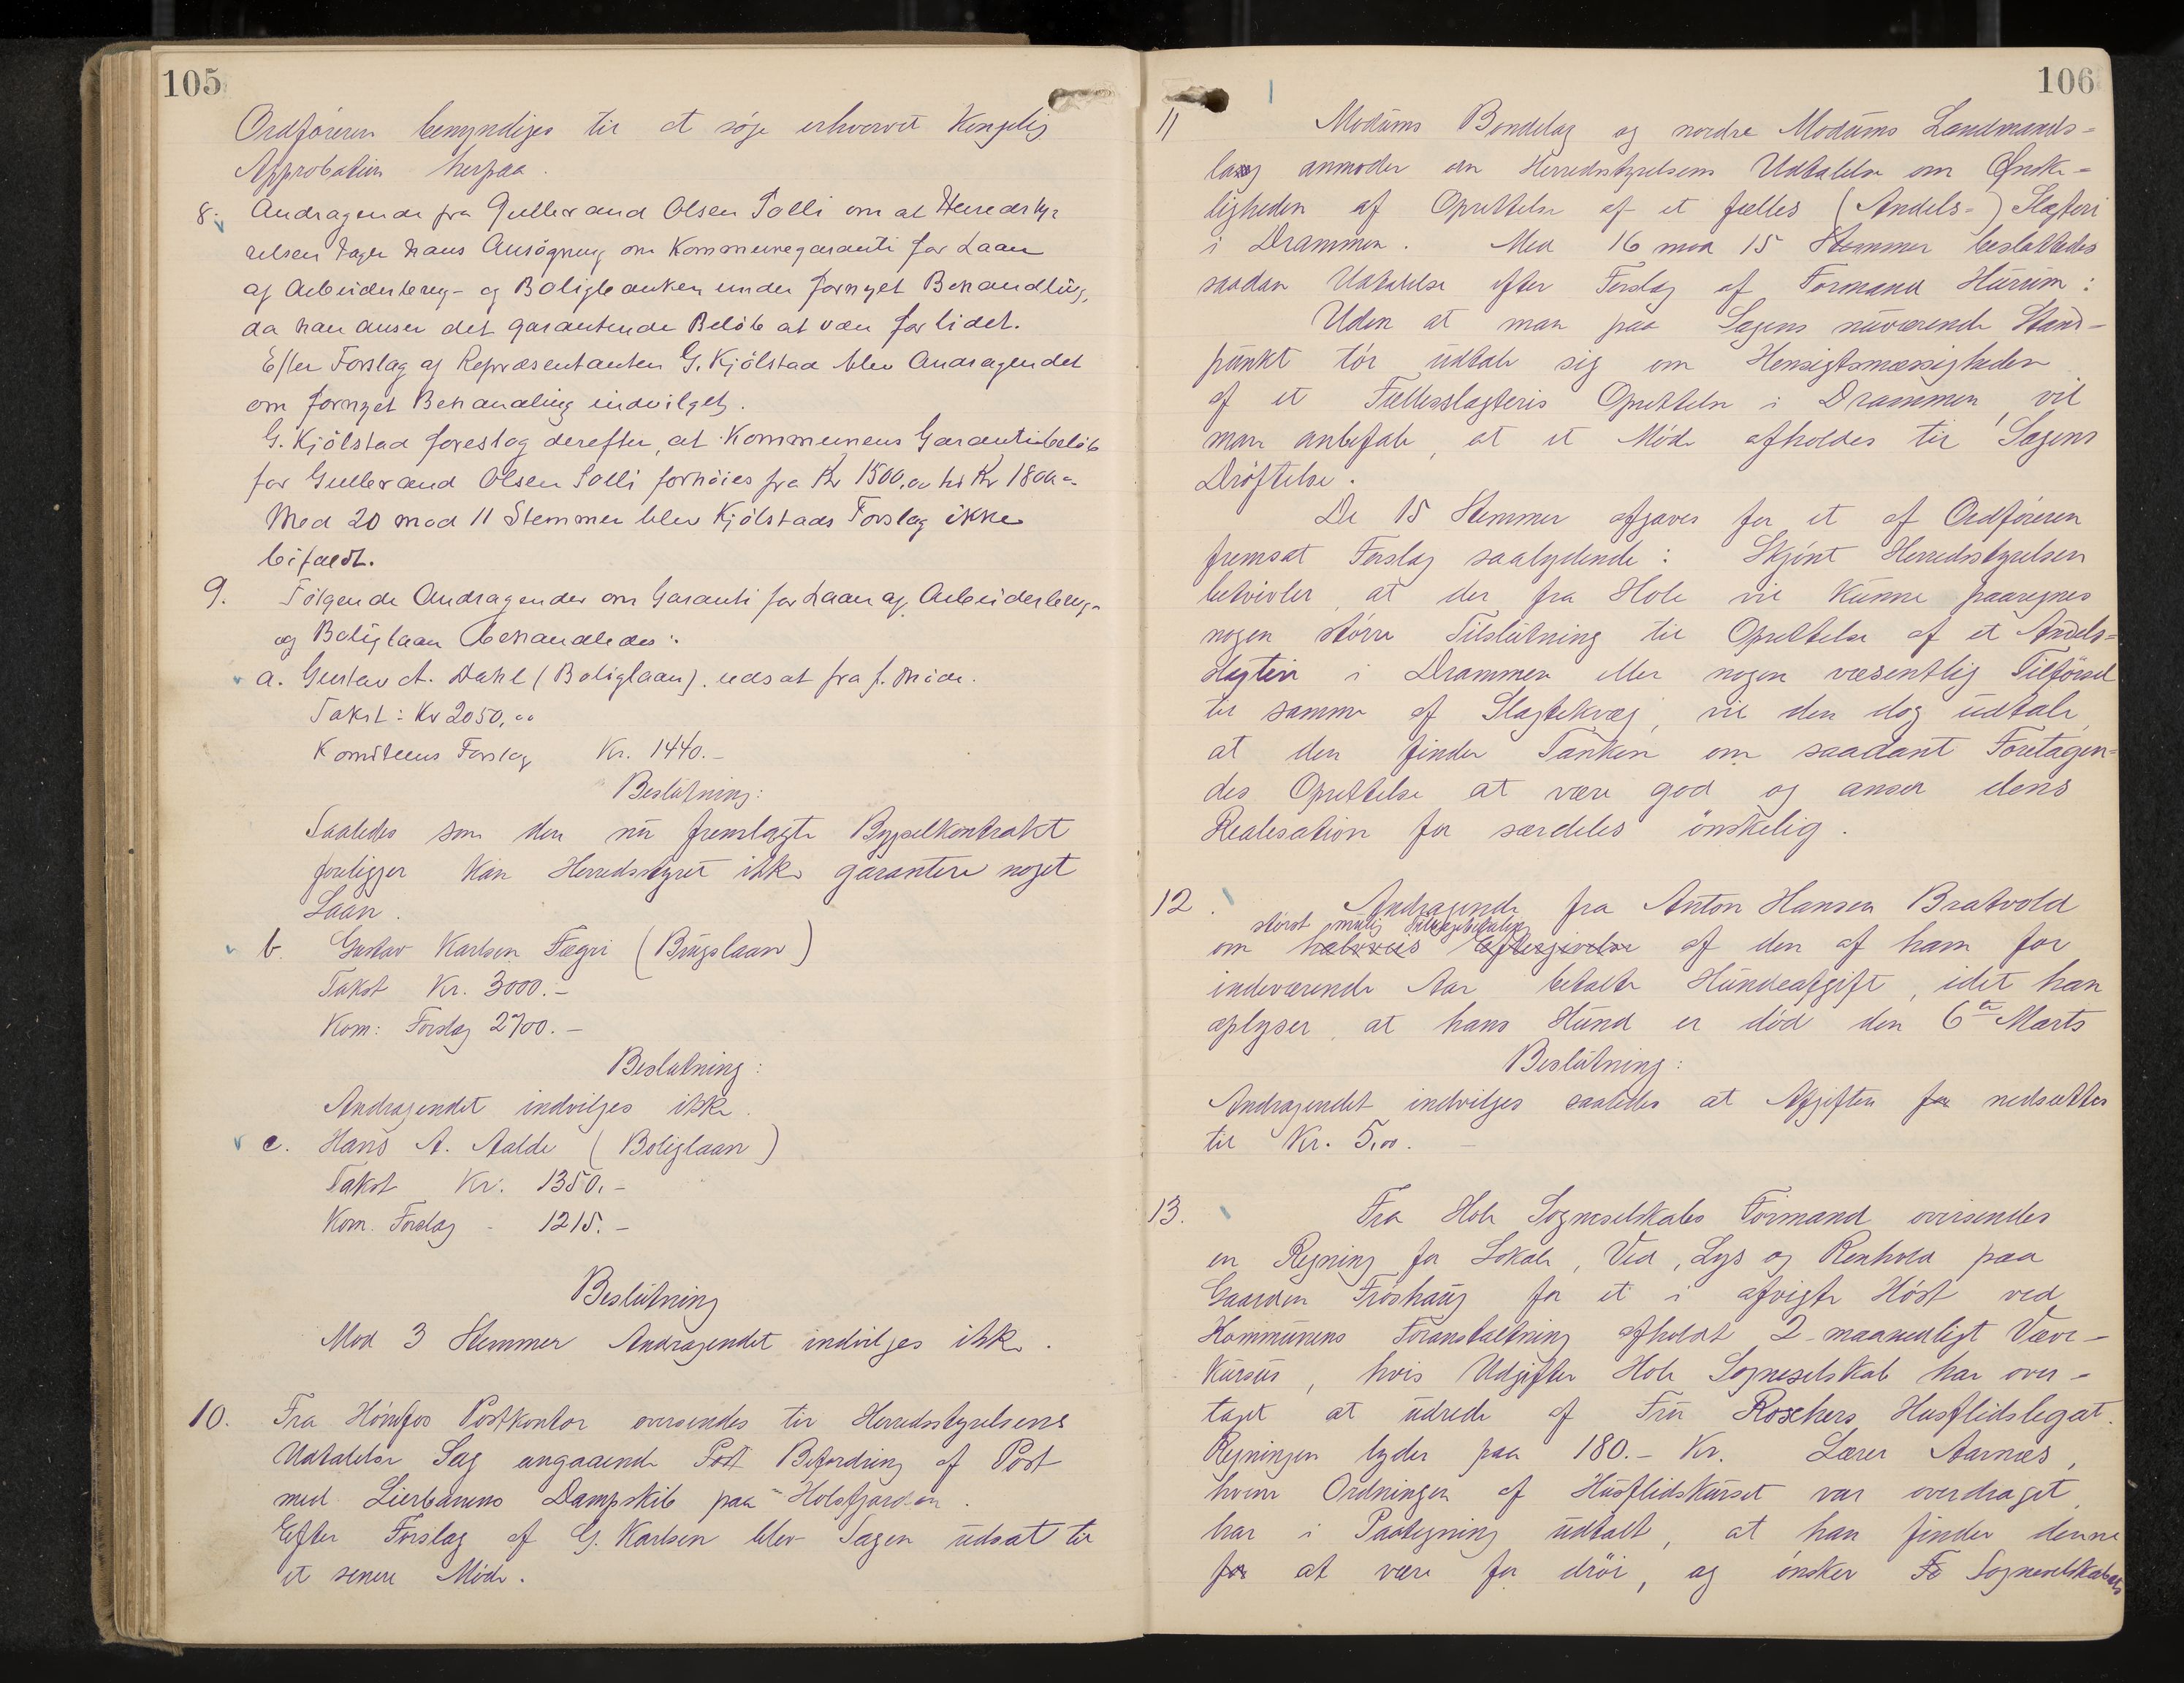 105
Ordføreren bemyndiges til at søge erhvervet Kongelig
Approbation herpaa.
8. Andragende fra Gulbrand Olsen Solli om at Herredsty-
relsen tager hans Ansøgning om Kommunegaranti for Laan
af Arbeiderbrug- og Boligbanken under fornyet Behandling,
da han anser det garanterede Beløb at være for lidet.
Efter Forslag af Repræsentanten G. Kjølstad blev Andragendet
om fornyet Behandling indvilget.
G. Kjølstad foreslog derefter, at Kommunens Garantibeløb
for Gulbrand Olsen Solli forhøies fra Kr 1500,00 til Kr 1800.-
Med 20 mod 11 Stemmer blev Kjølstads Forslag ikke
bifaldt.
9. Følgende Andragender om Garanti for Laan af Arbeiderbrug-
og Boliglaan behandledes:
a. Gustav A. Dahl (Boliglaan). udsat fra f. Møde.
Takst: Kr 2050,00
Komiteens Forslag Kr. 1440.-
Beslutning:
Saaledes som den nu fremlagte Bygselkontrakt
foreligger kan Herredsstyret ikke garantere noget
Laan.
b. Gustav Karlsen Fægri (Brugslaan)
Takst Kr. 3000.-
Kom: Forslag 2700.-
Beslutning:
Andragendet indvilges ikke.
c. Hans A. Aalde (Boliglaan)
Takst Kr. 1350.-
Kom. Forslag - 1215.-
Beslutning
Mod 3 Stemmer Andragendet indvilges ikke.
10. Fra Hønefos Postkontor oversendes til Herredsstyrelsens
Udtalelse Sag angaaende Post Befordring af Post
med Lierbanens Dampskib paa Holsfjorden.
Efter Forslag af G. Karlsen blev Sagen udsat til
et senere Møde.
106
11 Modums Bondelag og nordre Modums Landmands-
lag anmoder om Herredsstyrelsens Udtalelse om Ønske-
ligheden af Oprettelse af et fælles (Andels-) Slagteri
i Drammen. Med 16 mod 15 Stemmer besluttedes
saadan Udtalelse efter Forslag af Formand Hurum:
Uden at man paa Sagens nuværende Stand-
punkt tør udtale sig om Hensigtsmæssigheden
af et Fællesslagteris Oprettelse i Drammen, vil
man anbefale, at et Møde afholdes til Sagens
Drøftelse.
De 15 Stemmer afgaves for et af Ordføreren
fremsat Forslag saalydende: Skjønt Herredsstyrelsen
betvivler, at der fra Hole vil kunne paaregnes
nogen større Tilslutning til Oprettelse af et Andels-
slagteri i Drammen eller nogen væsentlig Tilførsel
til samme af Slagtekvæg, vil den dog udtale,
at den finder Tanken om saadant Foretagen-
des Oprettelse at være god og anser dens
Realisation for særdeles ønskelig.
12. Andragende fra Anton Hansen Bratvold
størst mulig Tilbagebetaling
om halvveis Eftergivelse af den af ham for
indeværende Aar betalte Hundeafgift, idet han
oplyser, at hans Hund er død den 6te Marts
Beslutning:
Andragendet indvilges saaledes at Afgiften for nedsættes
til Kr. 5,00.-
13. Fra Hole Sogneselskabs Formand oversendes
en Regning for Lokale, Ved, Lys og Renhold paa
Gaarden Frøshaug for et i afvigte Høst ved
Kommunens Foranstaltning afholdt 2-maanedligt Væve-
kursus, hvis Udgifter Hole Sogneselskab har over-
taget at udrede af Fru Roschers Husflidslegat.
Regningen lyder paa 180.- Kr. Lærer Aarnæs,
hvem Ordningen af Husflidskurset var overdraget,
har i Paategning udtalt, at han finder denne
for at være for drøi, og ønsker Fo Sogneselskabets